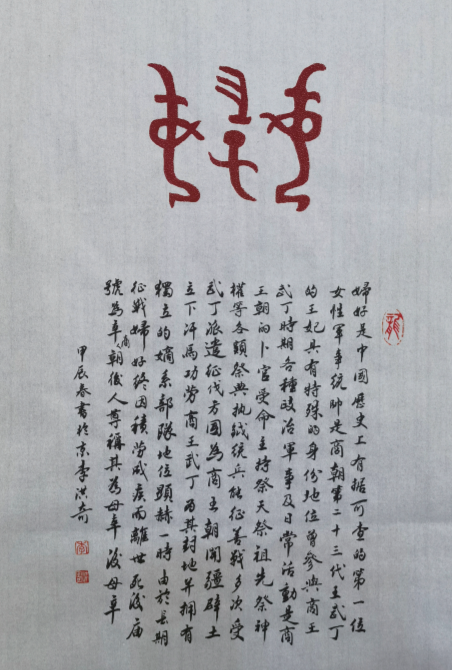 龍
婦好是中國歷史上有据可查的第一位
女性軍事統帥是商朝第二十三代王武丁
的王妃具有特殊的身份地位曾參與商王
武丁時期各種政治軍事及日常活動是商
王朝的卜官受命主持祭天祭祖先祭神
權等各類祭典执鉞統兵能征善戰多次受
武丁派遣征伐方國為商王朝開疆辟土
立下汗馬功勞商王武丁为其封地并拥有
獨立的嫡系部隊地位顯赫一時由於長期
征戰婦好終因積勞成疾而離世死後庙
號為辛商朝後人尊稱其為母辛後母辛
甲辰春書於京李洪奇